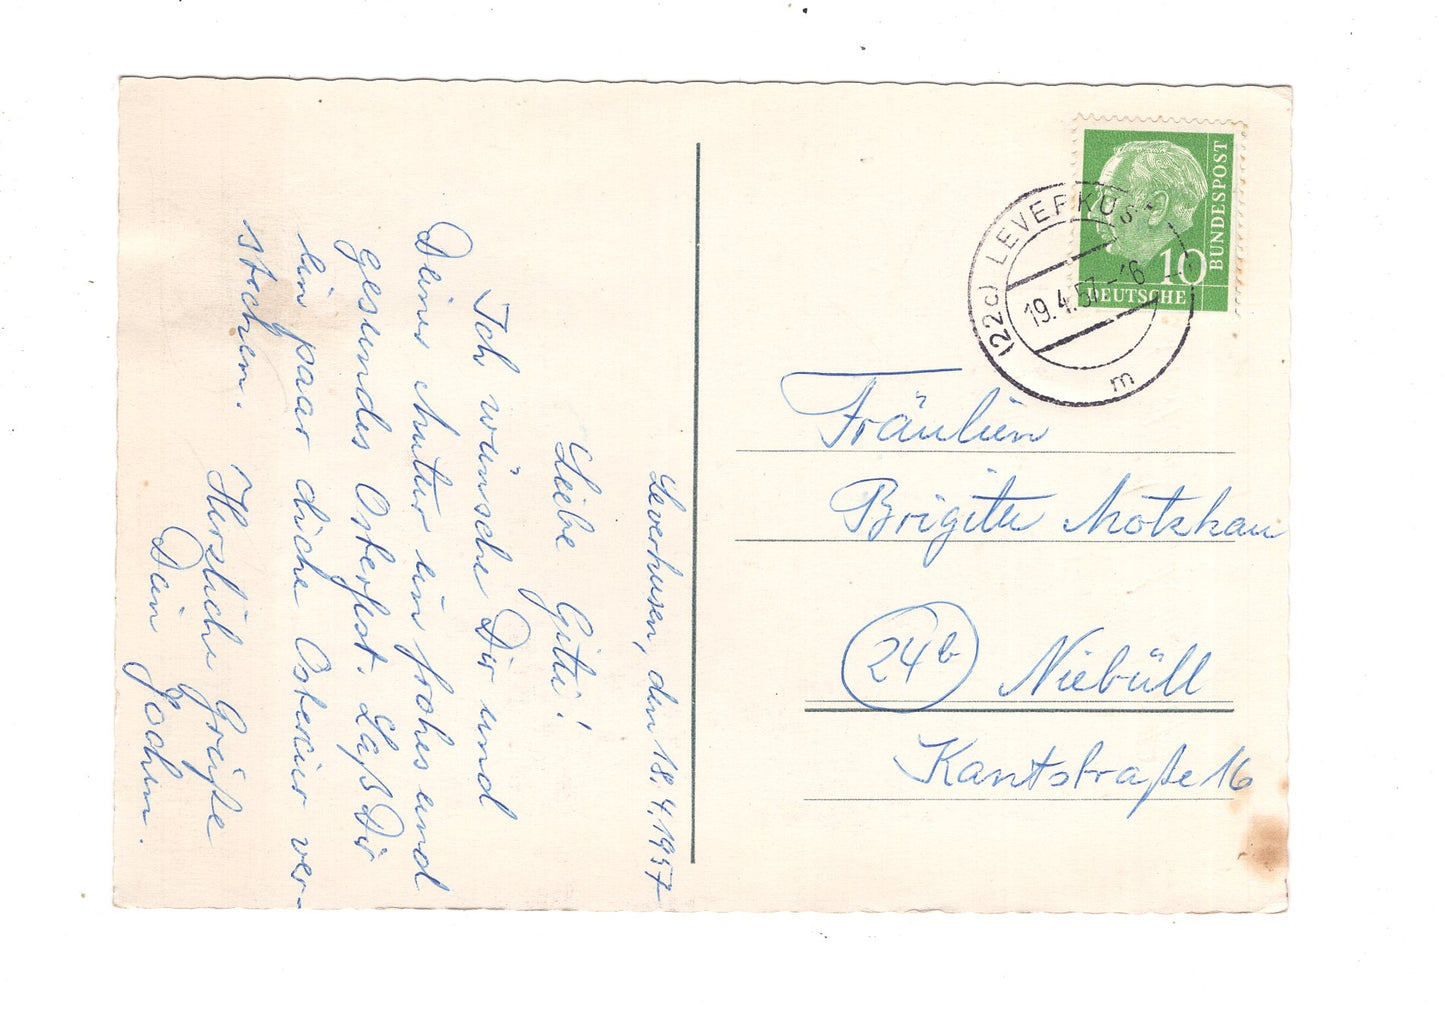 Leverkusen, den 18.4.1957
Liebe Gitti!
Ich wünsche Dir und
Deiner Mutter ein frohes und
gesundes Osterfest. Laß Dir
ein paar dicke Ostereier ver-
stecken. Herzliche Grüße
Dein Jochen.
Fräulien
Brigitte Motzkau
24b Niebüll
Kantstraße 16
(22c) LEVERKUS
19.4.57-
m
10
DEUTSCHE
BUNDESPOST